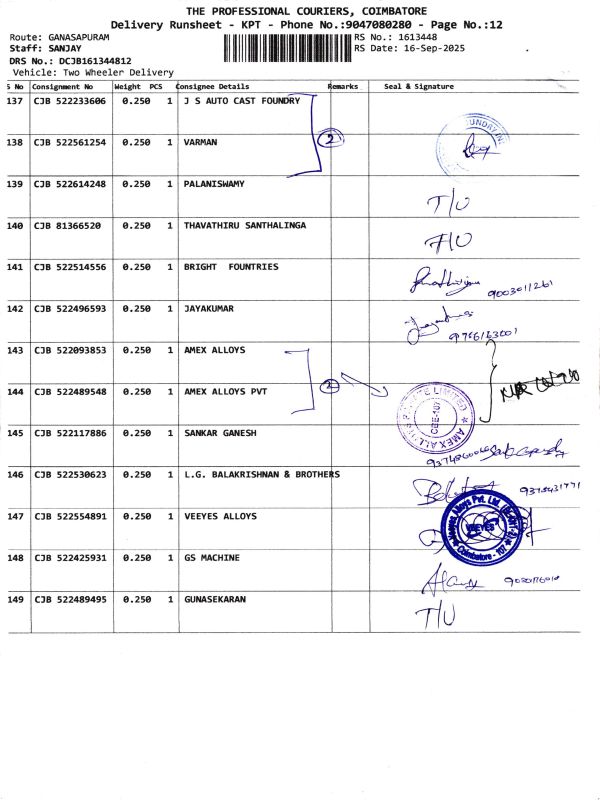 THE PROFESSIONAL COURIERS, COIMBATORE
Delivery Runsheet - KPT - Phone No.:9047080280 - Page No.:12
Route: GANASAPURAM
RS No.: 1613448
Staff: SANJAY
RS Date: 16-Sep-2025
DRS No.: DCJB161344812
Vehicle: Two Wheeler Delivery
S No Consignment No Weight PCS Consignee Details Remarks Seal & Signature
137 CJB 522233606 0.250 1 J S AUTO CAST FOUNDRY
138 CJB 522561254 0.250 1 VARMAN 2
139 CJB 522614248 0.250 1 PALANISWAMY T/U
140 CJB 81366520 0.250 1 THAVATHIRU SANTHALINGA T/U
141 CJB 522514556 0.250 1 BRIGHT FOUNTRIES 9003011261
142 CJB 522496593 0.250 1 JAYAKUMAR
143 CJB 522093853 0.250 1 AMEX ALLOYS
144 CJB 522489548 0.250 1 AMEX ALLOYS PVT 2
AMEX ALLOYS PRIVATE LIMITED
CBE-107
145 CJB 522117886 0.250 1 SANKAR GANESH
146 CJB 522530623 0.250 1 L.G. BALAKRISHNAN & BROTHERS
147 CJB 522554891 0.250 1 VEEYES ALLOYS
Veeyes Alloys Pvt. Ltd.
VEEYES
Coimbatore - 107
148 CJB 522425931 0.250 1 GS MACHINE
149 CJB 522489495 0.250 1 GUNASEKARAN T/U